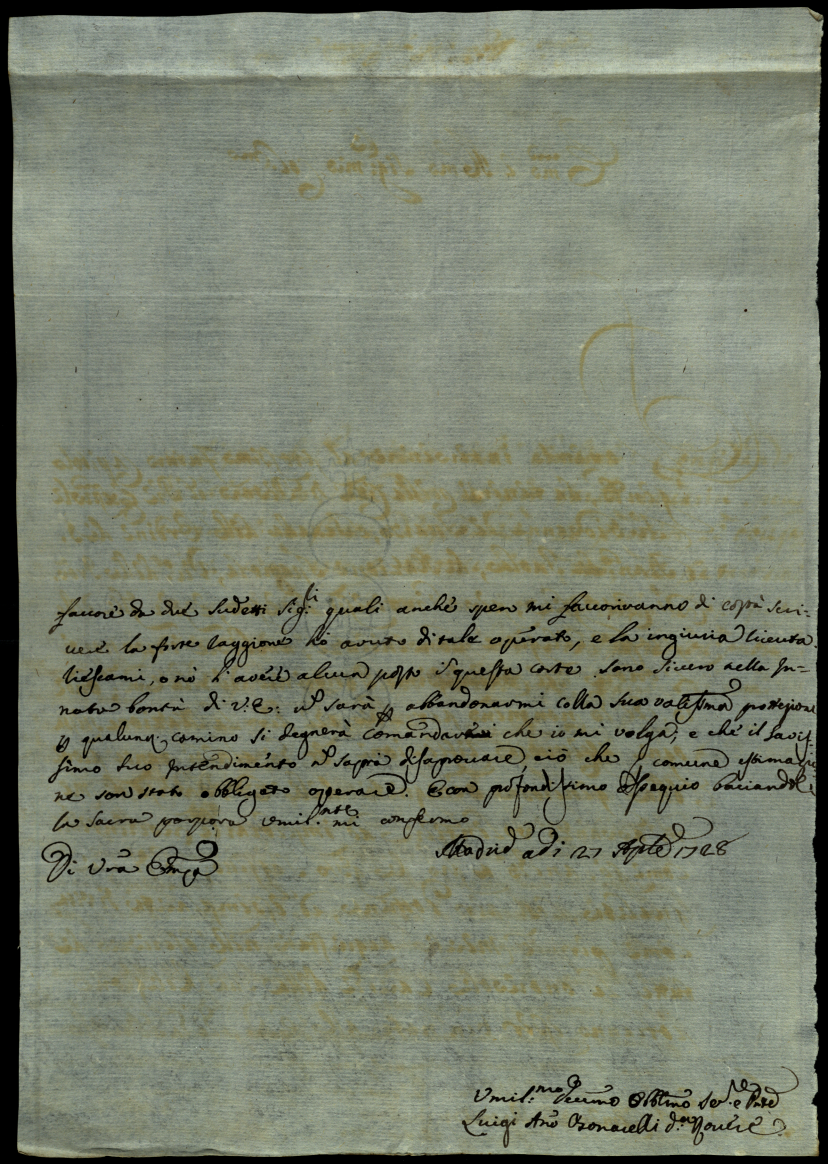 favore da due sudetti Sig.li quali anche spero mi favoriranno di costà scri-
vere la forte raggione hò avuto di tale operato, e la ingiuria
o nò d'avere alcun posto in questa corte. sono sicuro nella In-
nata bontà di V.E: nō sarà p abbandonarmi colla sua valetissima protezione
p qualunq. camino si degnerà Comandarmi che io mi volga, e che il savis-
simo suo Intendimento nō saprà disaprovare, ciò che p comune estimazio-
ne son stato obbligato operare. E con profondissimo Ossequio baciandole
la Sacra porpora umil.mte mi confermo
Di Vra Emza
Madrid a Di 21 1728
Umil.mo Obbmo Ser.e
Luigi Anō Bonacelli